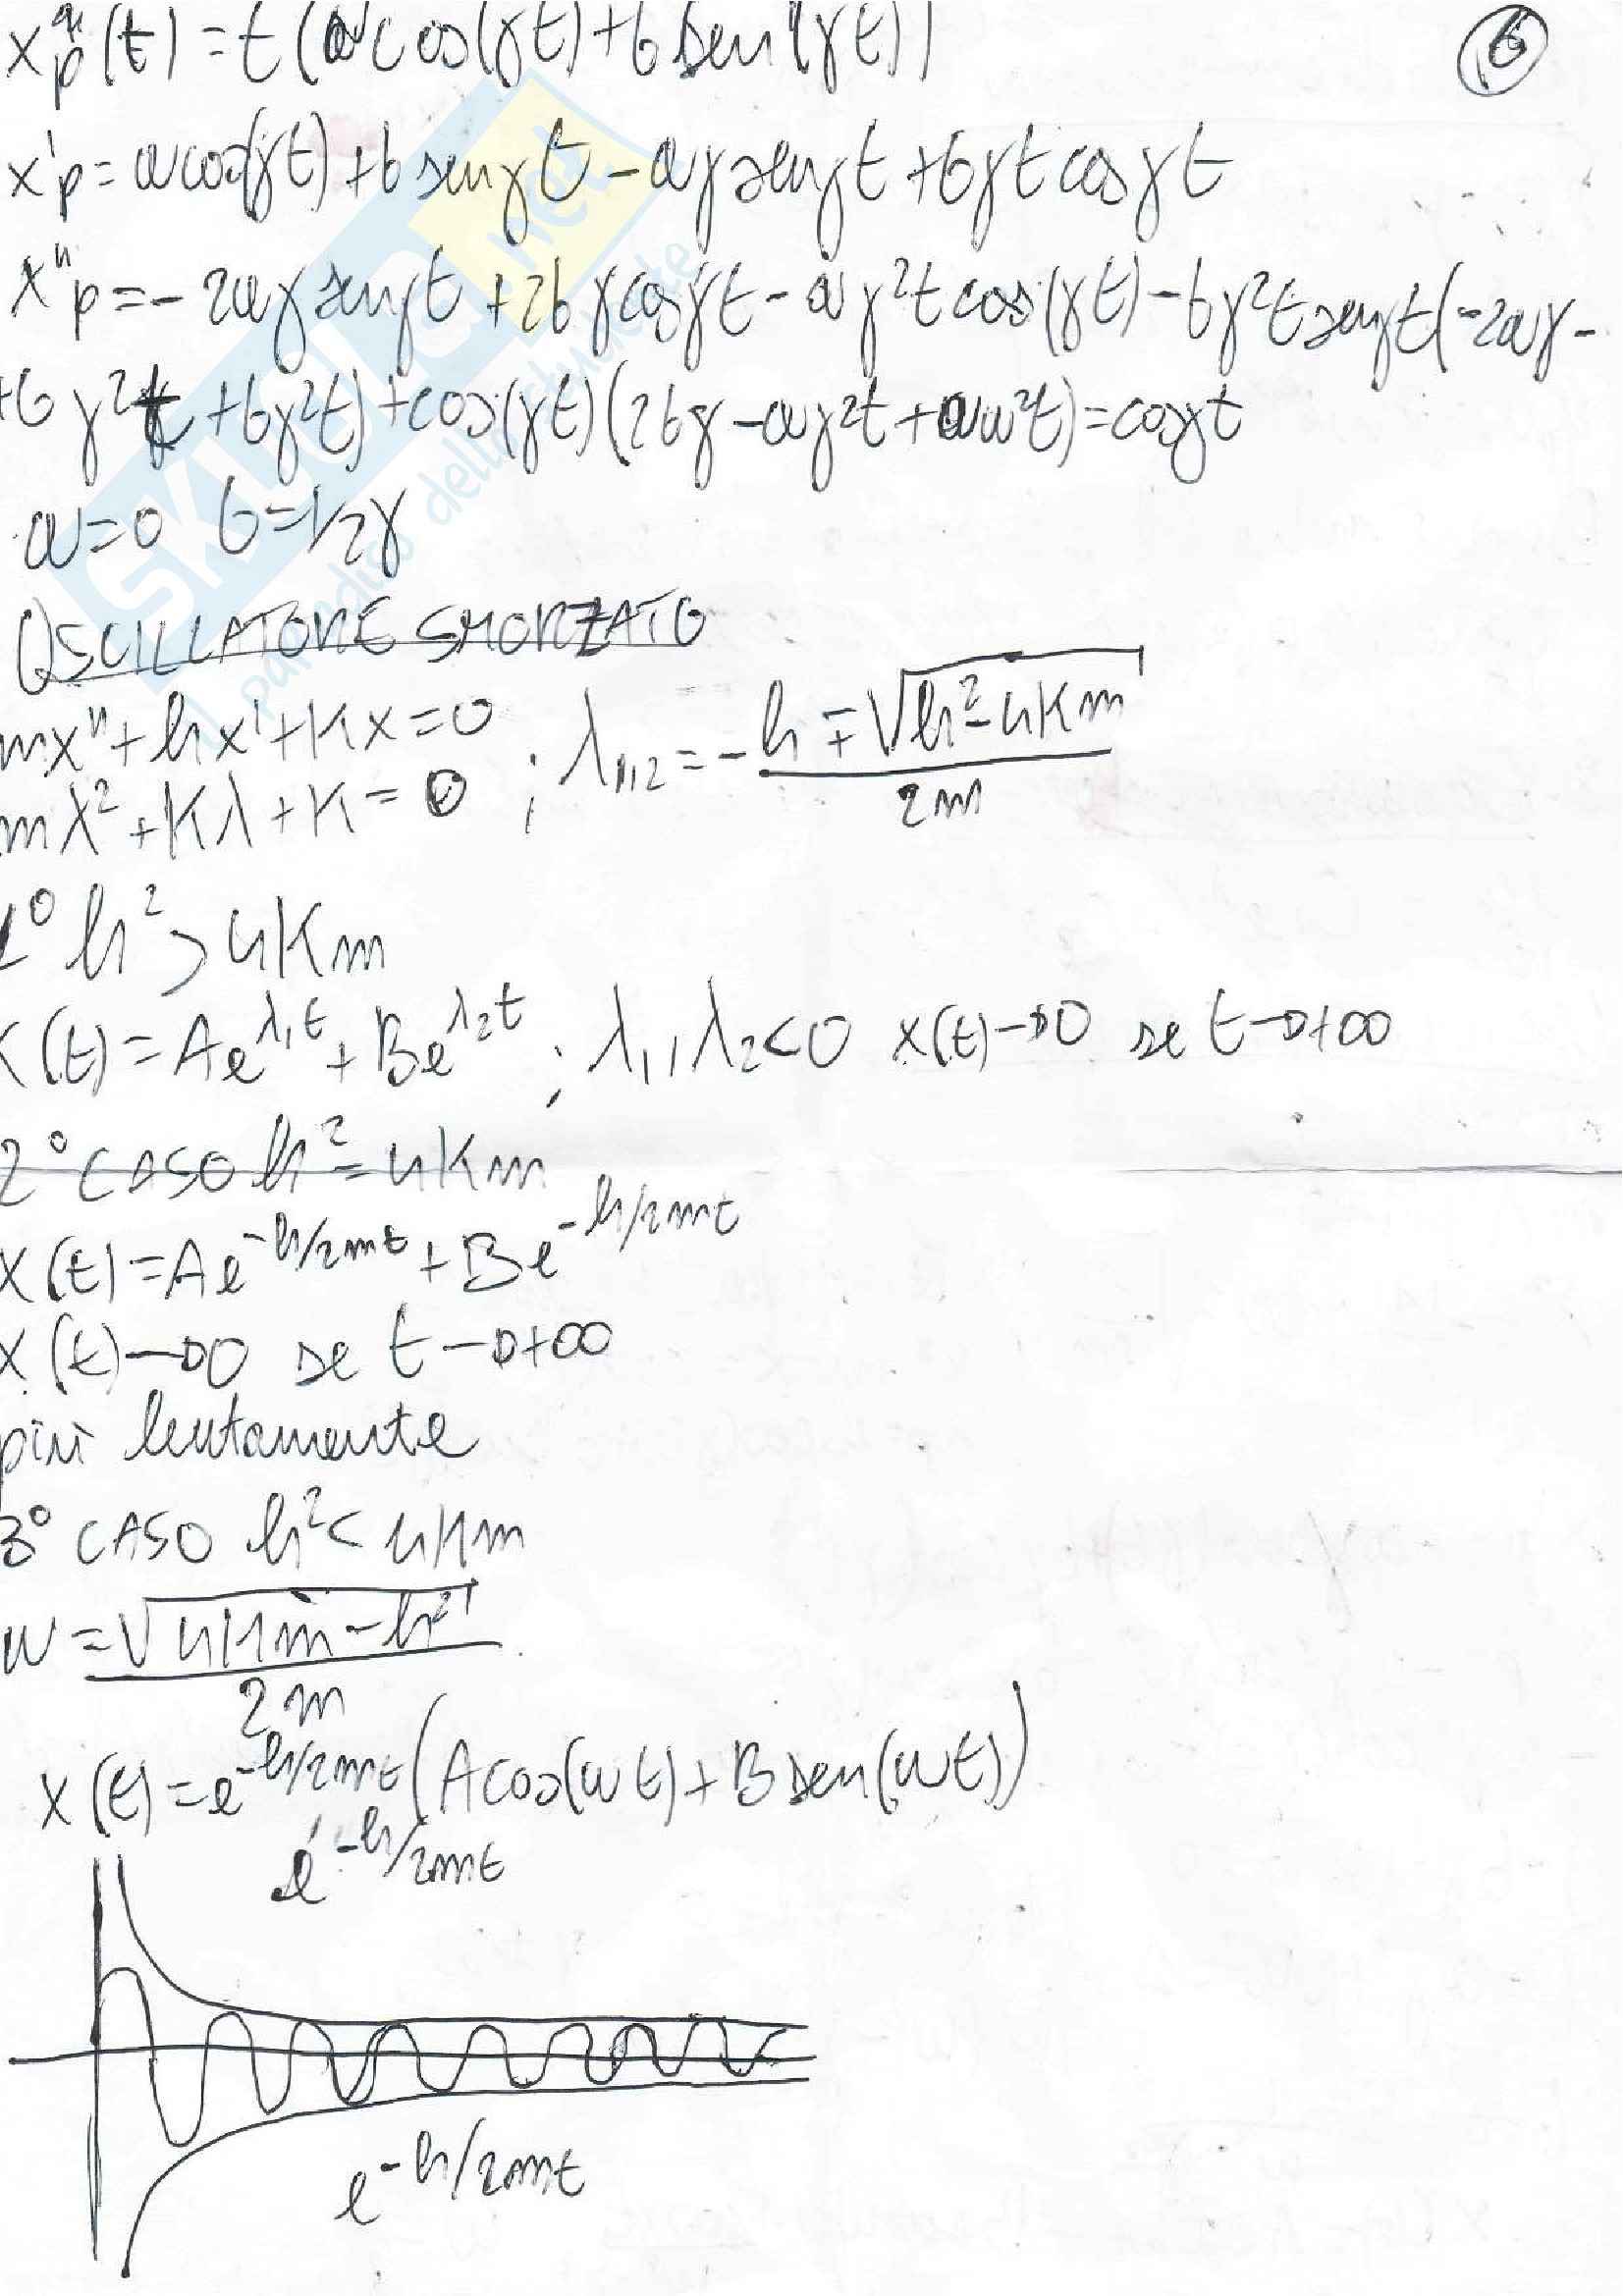 x_p^u(t) = t(a cos(γt)+b sen(γt))
6
x'p = a cos(γt)+b senγt - aγ senγt + bγt cosγt
x"p = - 2aγ senγt + 2bγ cosγt - aγ²t cos(γt) - bγ²t senγt(-2aγ-
+bγ²t + bγ²t)+cos(γt)(2bγ - aγ²t + aw²t) = cosγt
a=0 b=1/2γ
OSCILLATORE SMORZATO
mx"+hx'+Kx=0 ; λ1,2 = -h ∓ √h²-4Km / 2m
mλ²+Kλ+K=0
1° h²>4Km
x(t)=Ae^λ₁t + Be^λ₂t ; λ₁,λ₂<0 x(t)→0 se t→+∞
2° CASO h²=4Km
x(t)=Ae^-h/2mt + Be^-h/2mt
x(t)→0 se t→+∞
più lentamente
3° CASO h²<4Km
w = √4Km-h² / 2m
x(t)=e^-h/2mt (A cos(wt)+B sen(wt))
e^-h/2mt
e^-h/2mt
SKUOLA.net
il paradiso dello studente